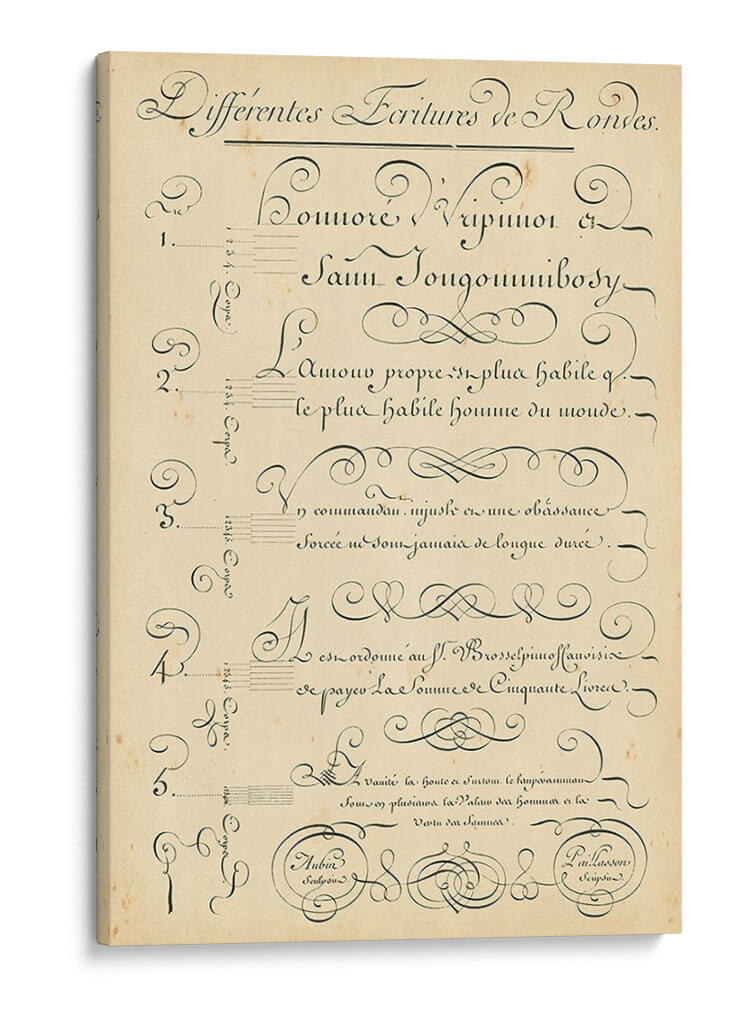 Différentes Ecritures de Rondes.
1.
1 2 3 4. Corps
honnoré d'Vripinnoi et
Saint Jongonninibosy
2.
1 2 3 4 5. Corps
L'Amour propre est plus habile q.
le plus habile homme du monde.
3.
1 2 3 4 5. Corps
Un commandant injuste et une obäissance
forcée ne sont jamais de longue durée.
4.
1 2 3 4 5. Corps
Il est ordonné au Sr.
de payer La Somme de Cinquante Livres.
5.
Corps
La vanité la honte et Surtout le tempérammant
Sont en plusieurs la Valeur des hommes et la
Vertu des Femmes.
Aubin
Sculpsit
Paillasson
Scripsit